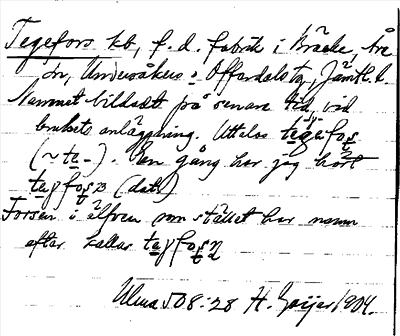 Tegefors kb, f. d. fabrik i Bräcke, Åre
sn, Undersåkers o. Offerdals tg, Jämtl. l.
Namnet bildadt på senare tid, vid
brukets anläggning. Uttalas tegefoṣ
(~ te-). En gång har jag hört
tegfoṣ (dat.)
Forsen i älfven om stället har namn
efter kallas
Ulma 508:28 H. Geijer 1904.